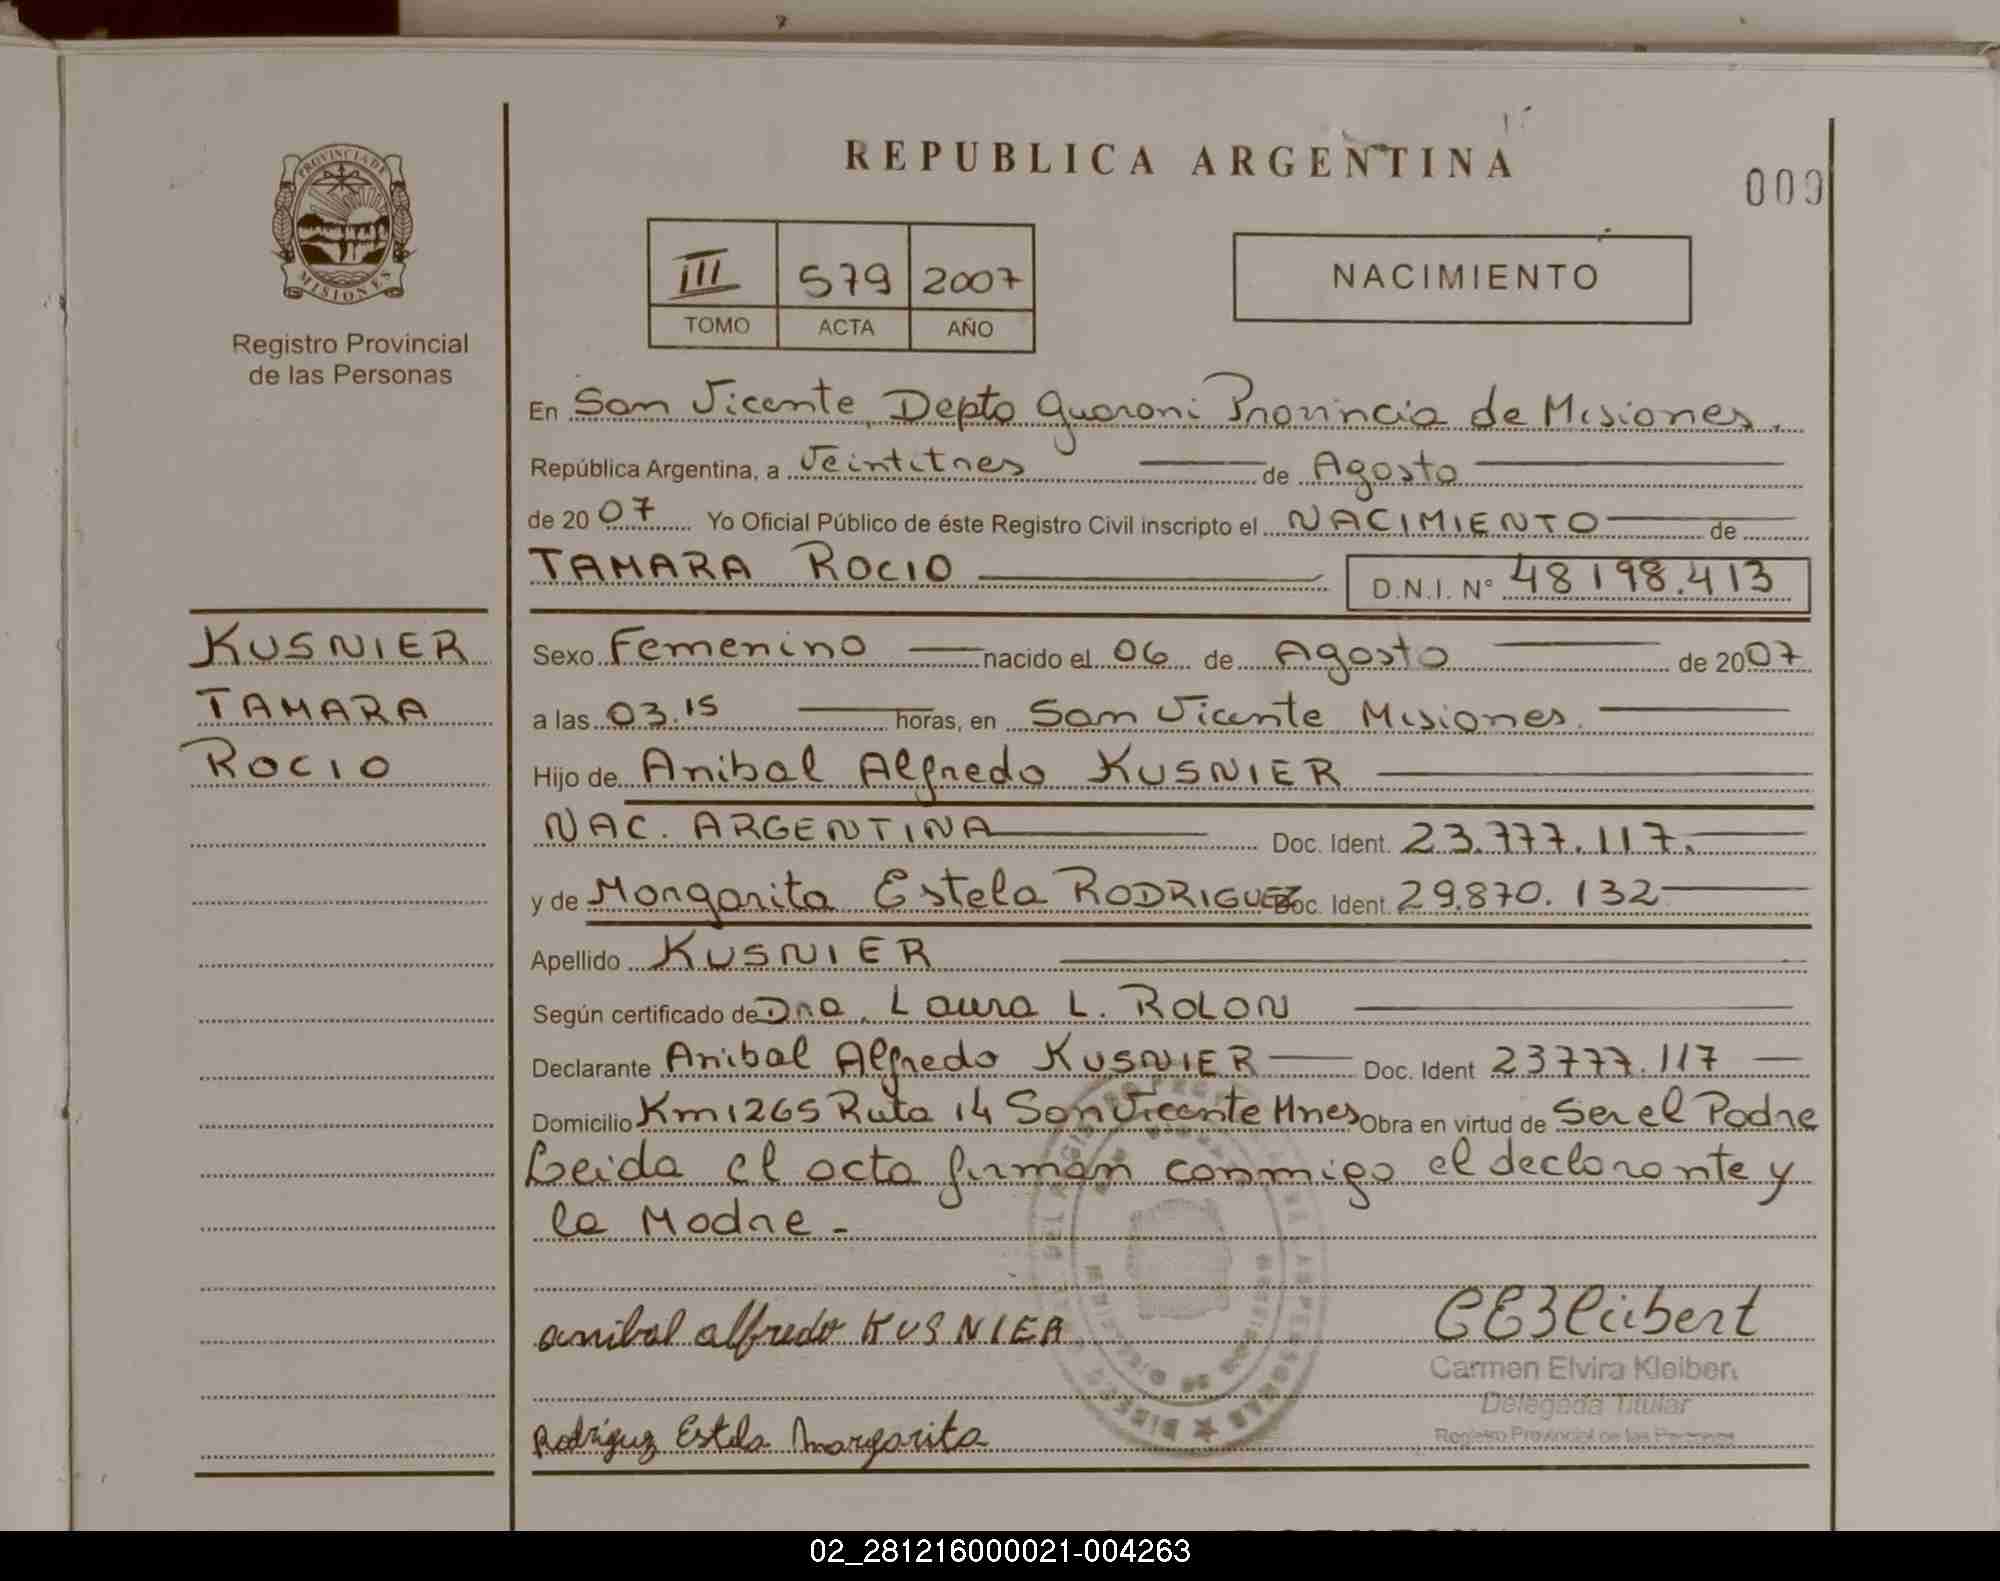 REPUBLICA ARGENTINA
000
PROVINCIA DE
MISIONES
Registro Provincial
de las Personas
III 579 2007
TOMO ACTA AÑO
NACIMIENTO
En San Vicente, Depto Guarani Provincia de Misiones.
República Argentina, a Veintitres de Agosto
de 2007 Yo Oficial Público de éste Registro Civil inscripto el NACIMIENTO de
TAMARA ROCIO D.N.I. N° 48198.413
KUSNIER
TAMARA
ROCIO
Sexo Femenino nacido el 06 de Agosto de 2007
a las 03.15 horas, en San Vicente Misiones.
Hijo de Anibal Alfredo KUSNIER
NAC. ARGENTINA Doc. Ident. 23.777.117.
y de Margarita Estela RODRIGUEZ Doc. Ident. 29.870.132
Apellido KUSNIER
Según certificado de Dra. Laura L. ROLON
Declarante Anibal Alfredo KUSNIER Doc. Ident 23777.117
Domicilio Km 1265 Ruta 14 San Vicente Mnes Obra en virtud de Ser el Padre
Leida el acta firman conmigo el declarante y
la Madre -
anibal alfredo KUSNIER
Carmen Elvira Kleibert
Delegada Titular
Registro Provincial de las Personas
Rodriguz Estela Margarita
02_281216000021-004263